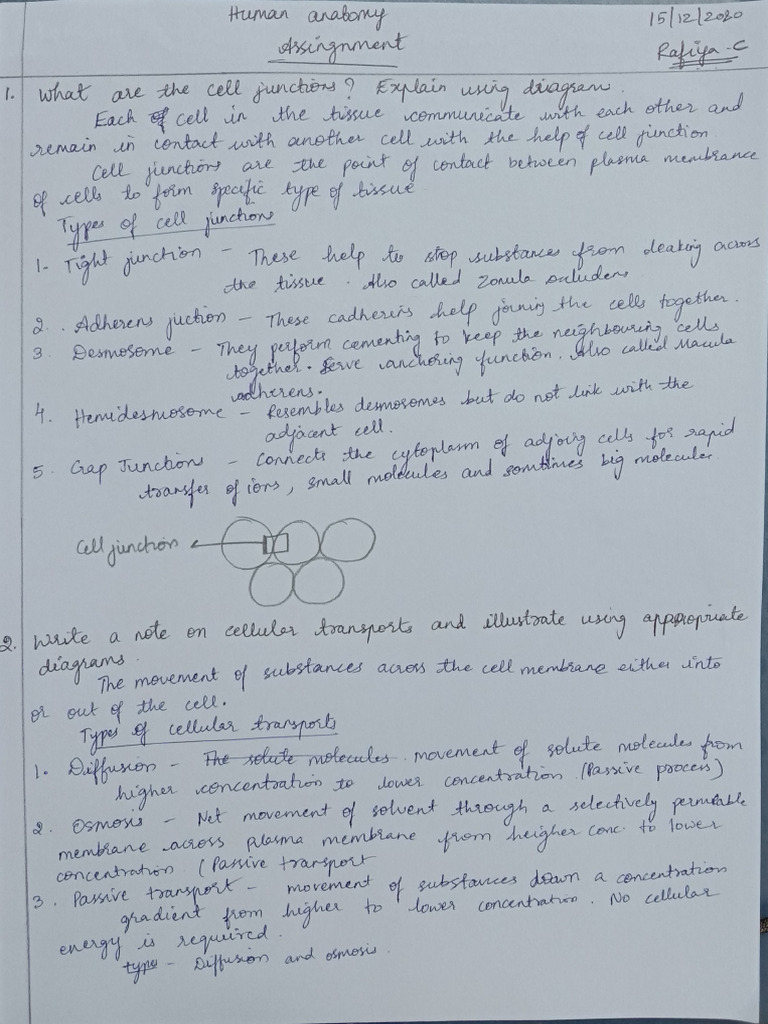 Human anatomy
15/12/2020
Assingnment
Rafiya-C
1. What are the cell junctions? Explain using diagram.
Each of cell in the tissue communicate with each other and
remain in contact with another cell with the help of cell junction
Cell junctions are the point of contact between plasma membrance
of cells to form specific type of tissue
Types of cell junctions
1- Tight junction - These help to stop substances from leaking across
the tissue. Also called Zonula
2. Adherens juction - These cadherins help joining the cells together.
3. Desmosome - They perform cementing to keep the neighbouring cells
together. Serve anchoring function. Also called Macula
adherens.
4. Hemidesmosome - Resembles desmosomes but do not link with the
adjacent cell.
5. Gap Junctions - Connects the cytoplasm of adjoing cells for rapid
transfer of ions, small molecules and somtimes big molecular.
Cell junction
2. Write a note on cellular transports and illustrate using appropriate
diagrams.
The movement of substances across the cell membrane either into
or out of the cell.
Types of cellular transports
1. Diffusion - The solute molecules. movement of solute molecules from
higher concentration to lower concentration. (Passive process)
2. Osmosis - Net movement of solvent through a selectively permeable
membrane across plasma membrane from heigher conc. to lower
concentration. (Passive transport
3. Passive transport - movement of substances down a concentration
gradient from higher to lower concentration. No cellular
energy is required.
type - Diffusion and osmosis.